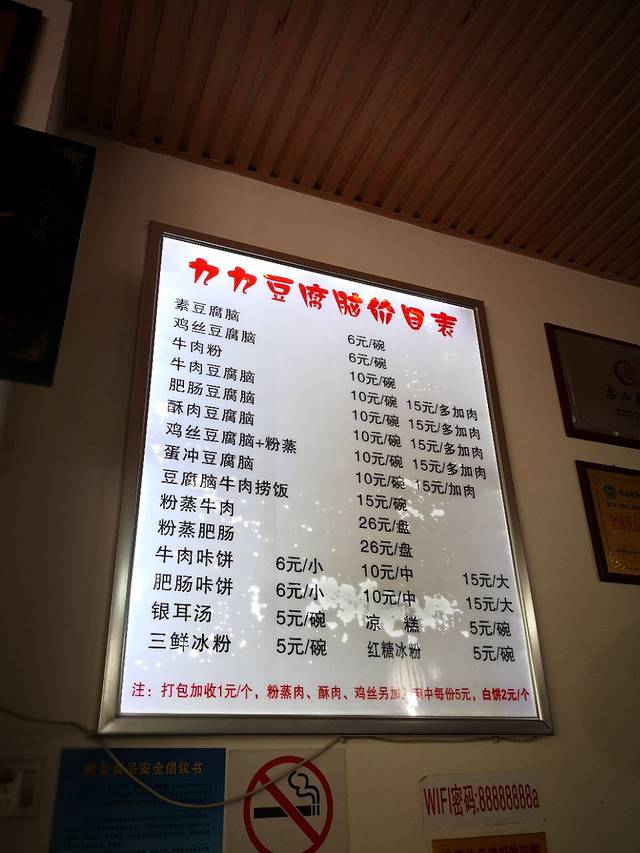 九九豆腐脑价目表
素豆腐脑 6元/碗
鸡丝豆腐脑 6元/碗
牛肉粉 10元/碗
牛肉豆腐脑 10元/碗 15元/多加肉
肥肠豆腐脑 10元/碗 15元/多加肉
酥肉豆腐脑 10元/碗 15元/多加肉
鸡丝豆腐脑+粉蒸 10元/碗 15元/多加肉
蛋冲豆腐脑 10元/碗 15元/加肉
豆腐脑牛肉捞饭 15元/碗
粉蒸牛肉 26元/盘
粉蒸肥肠 26元/盘
牛肉咔饼 6元/小 10元/中 15元/大
肥肠咔饼 6元/小 10元/中 15元/大
银耳汤 5元/碗 凉糕 5元/碗
三鲜冰粉 5元/碗 红糖冰粉 5元/碗
注：打包加收1元/个，粉蒸肉、酥肉、鸡丝另加入碗中每份5元，白饼2元/个
食品安全倡议书
WIFI密码:88888888a